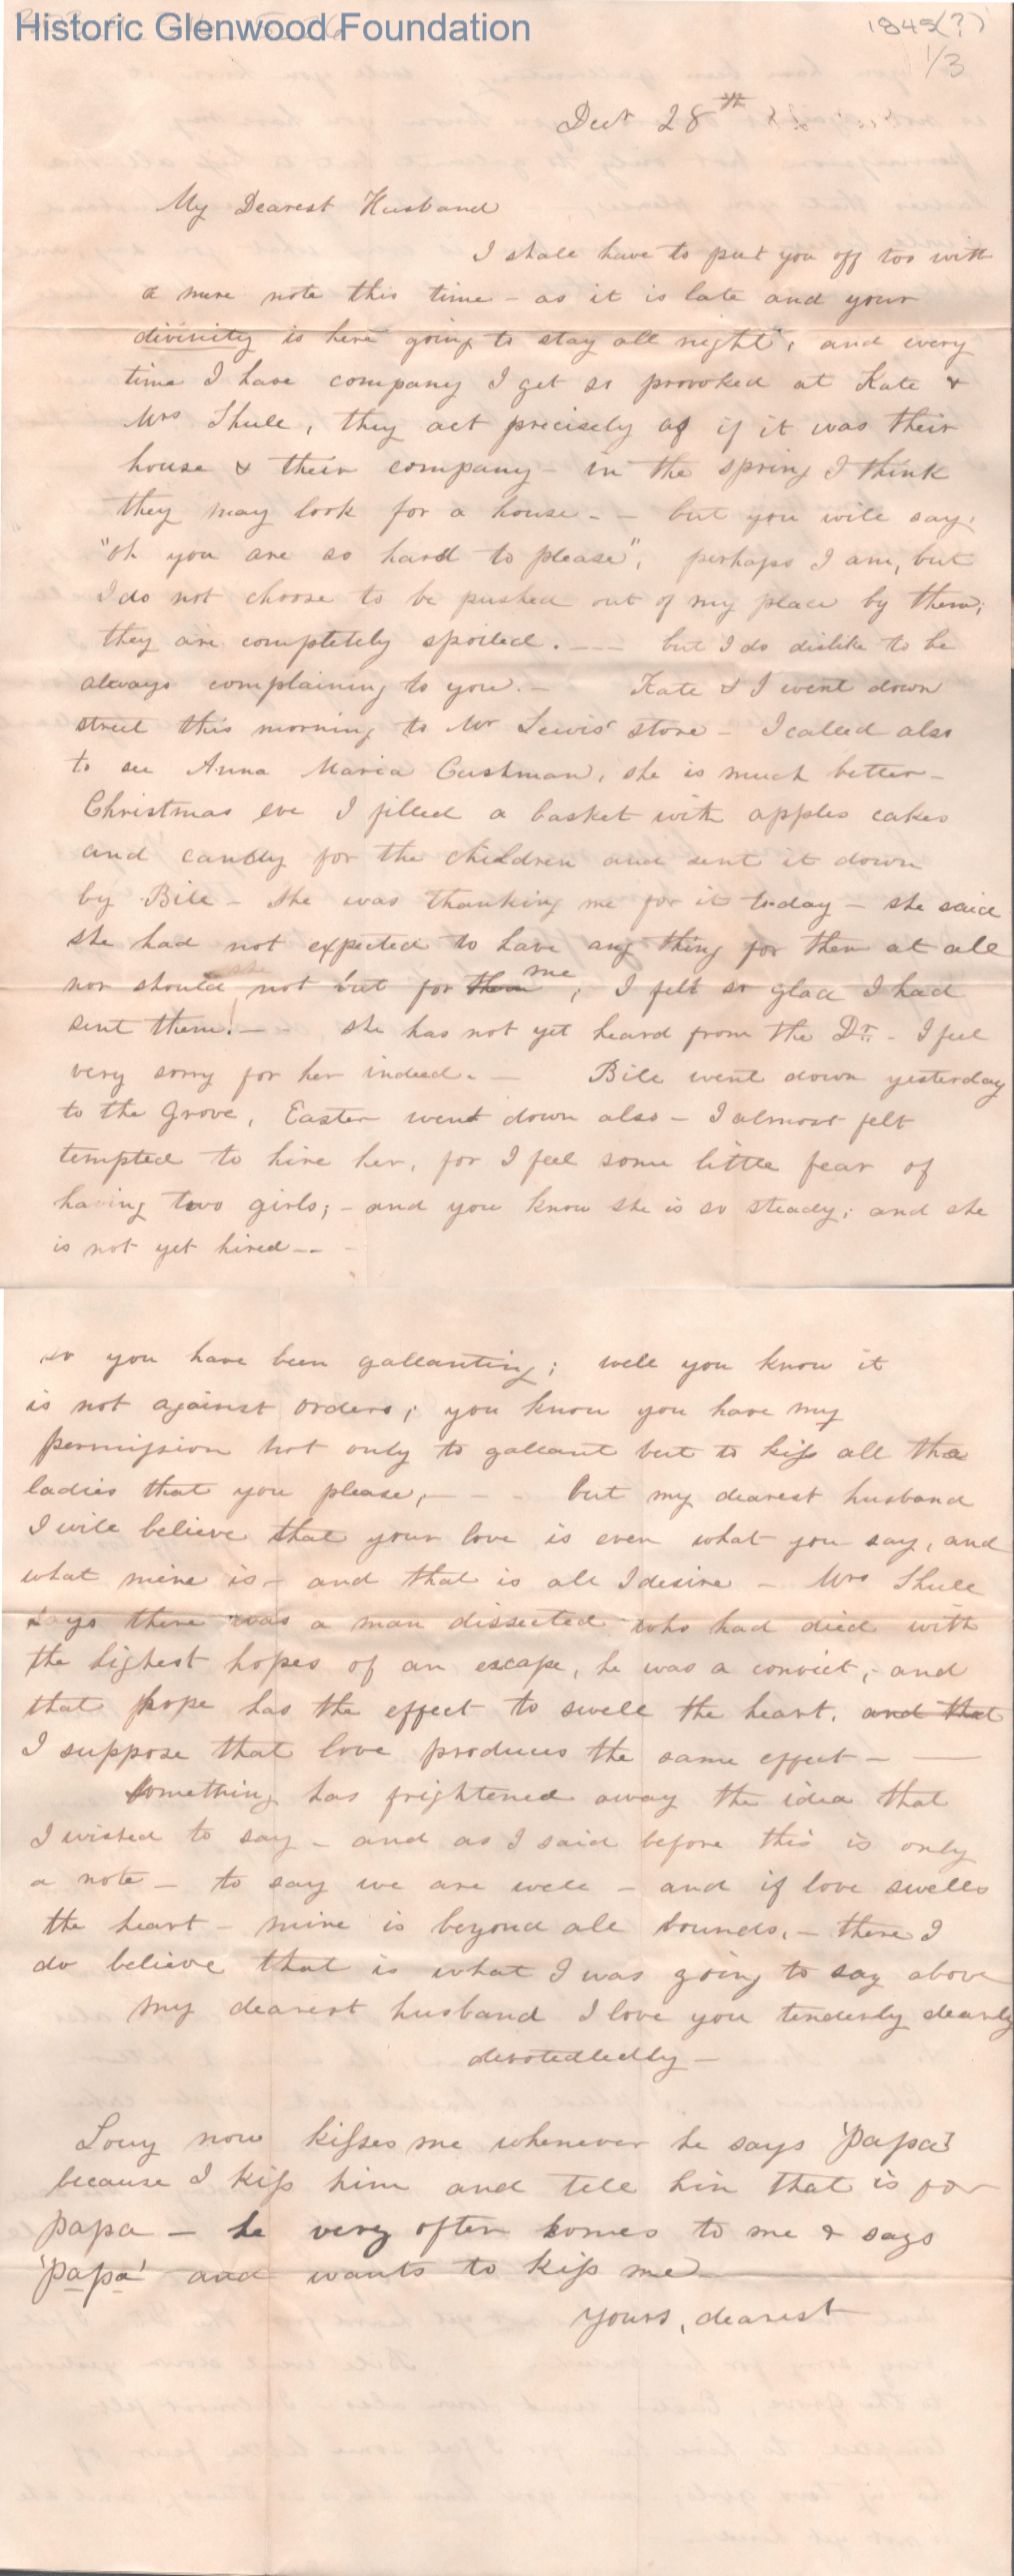 Historic Glenwood Foundation
1845(?)
1/3
Dect 28th
My Dearest Husband
I shall have to put you off too with
a mere note this time - as it is late and your
divinity is here going to stay all night, and every
time I have company I get so provoked at Kate &
Mrs Shule, they act precisely as if it was their
house & their company - in the spring I think
they may look for a house - - but you will say,
"oh you are so hard to please", perhaps I am, but
I do not choose to be pushed out of my place by them;
they are completely spoiled. --- but I do dislike to be
always complaining to you. - Kate & I went down
street this morning to Mr Lewis' store - I called also
to see Anna Maria Cushman, she is much better -
Christmas eve I filled a basket with apples cakes
and candy for the children and sent it down
by Bill - She was thanking me for it today - she said
she had not expected to have any thing for them at all
nor should she not but for them me, I felt so glad I had
sent them! - she has not yet heard from the Dr. - I feel
very sorry for her indeed. - Bill went down yesterday
to the Grove, Easter went down also - I almost felt
tempted to hire her, for I feel some little fear of
having two girls; - and you know she is so steady; and she
is not yet hired --
so you have been gallanting; well you know it
is not against orders; you know you have my
permission not only to gallant but to kiss all the
ladies that you please, - - - but my dearest husband
I will believe that your love is even what you say, and
what mine is - and that is all I desire - Mrs Shule
says there was a man dissected who had died with
the highest hopes of an escape, he was a convict, and
that hope has the effect to swell the heart. and that
I suppose that love produces the same effect - -
Something has frightened away the idea that
I wished to say - and as I said before this is only
a note - to say we are well - and if love swells
the heart - mine is beyond all bounds. - there I
do believe that is what I was going to say above
My dearest husband I love you tenderly dearly
devotedledly -
Louy now kisses me whenever he says 'papa'
because I kiss him and tell him that is for
papa - he very often comes to me & says
'papa' and wants to kiss me
Yours, dearest